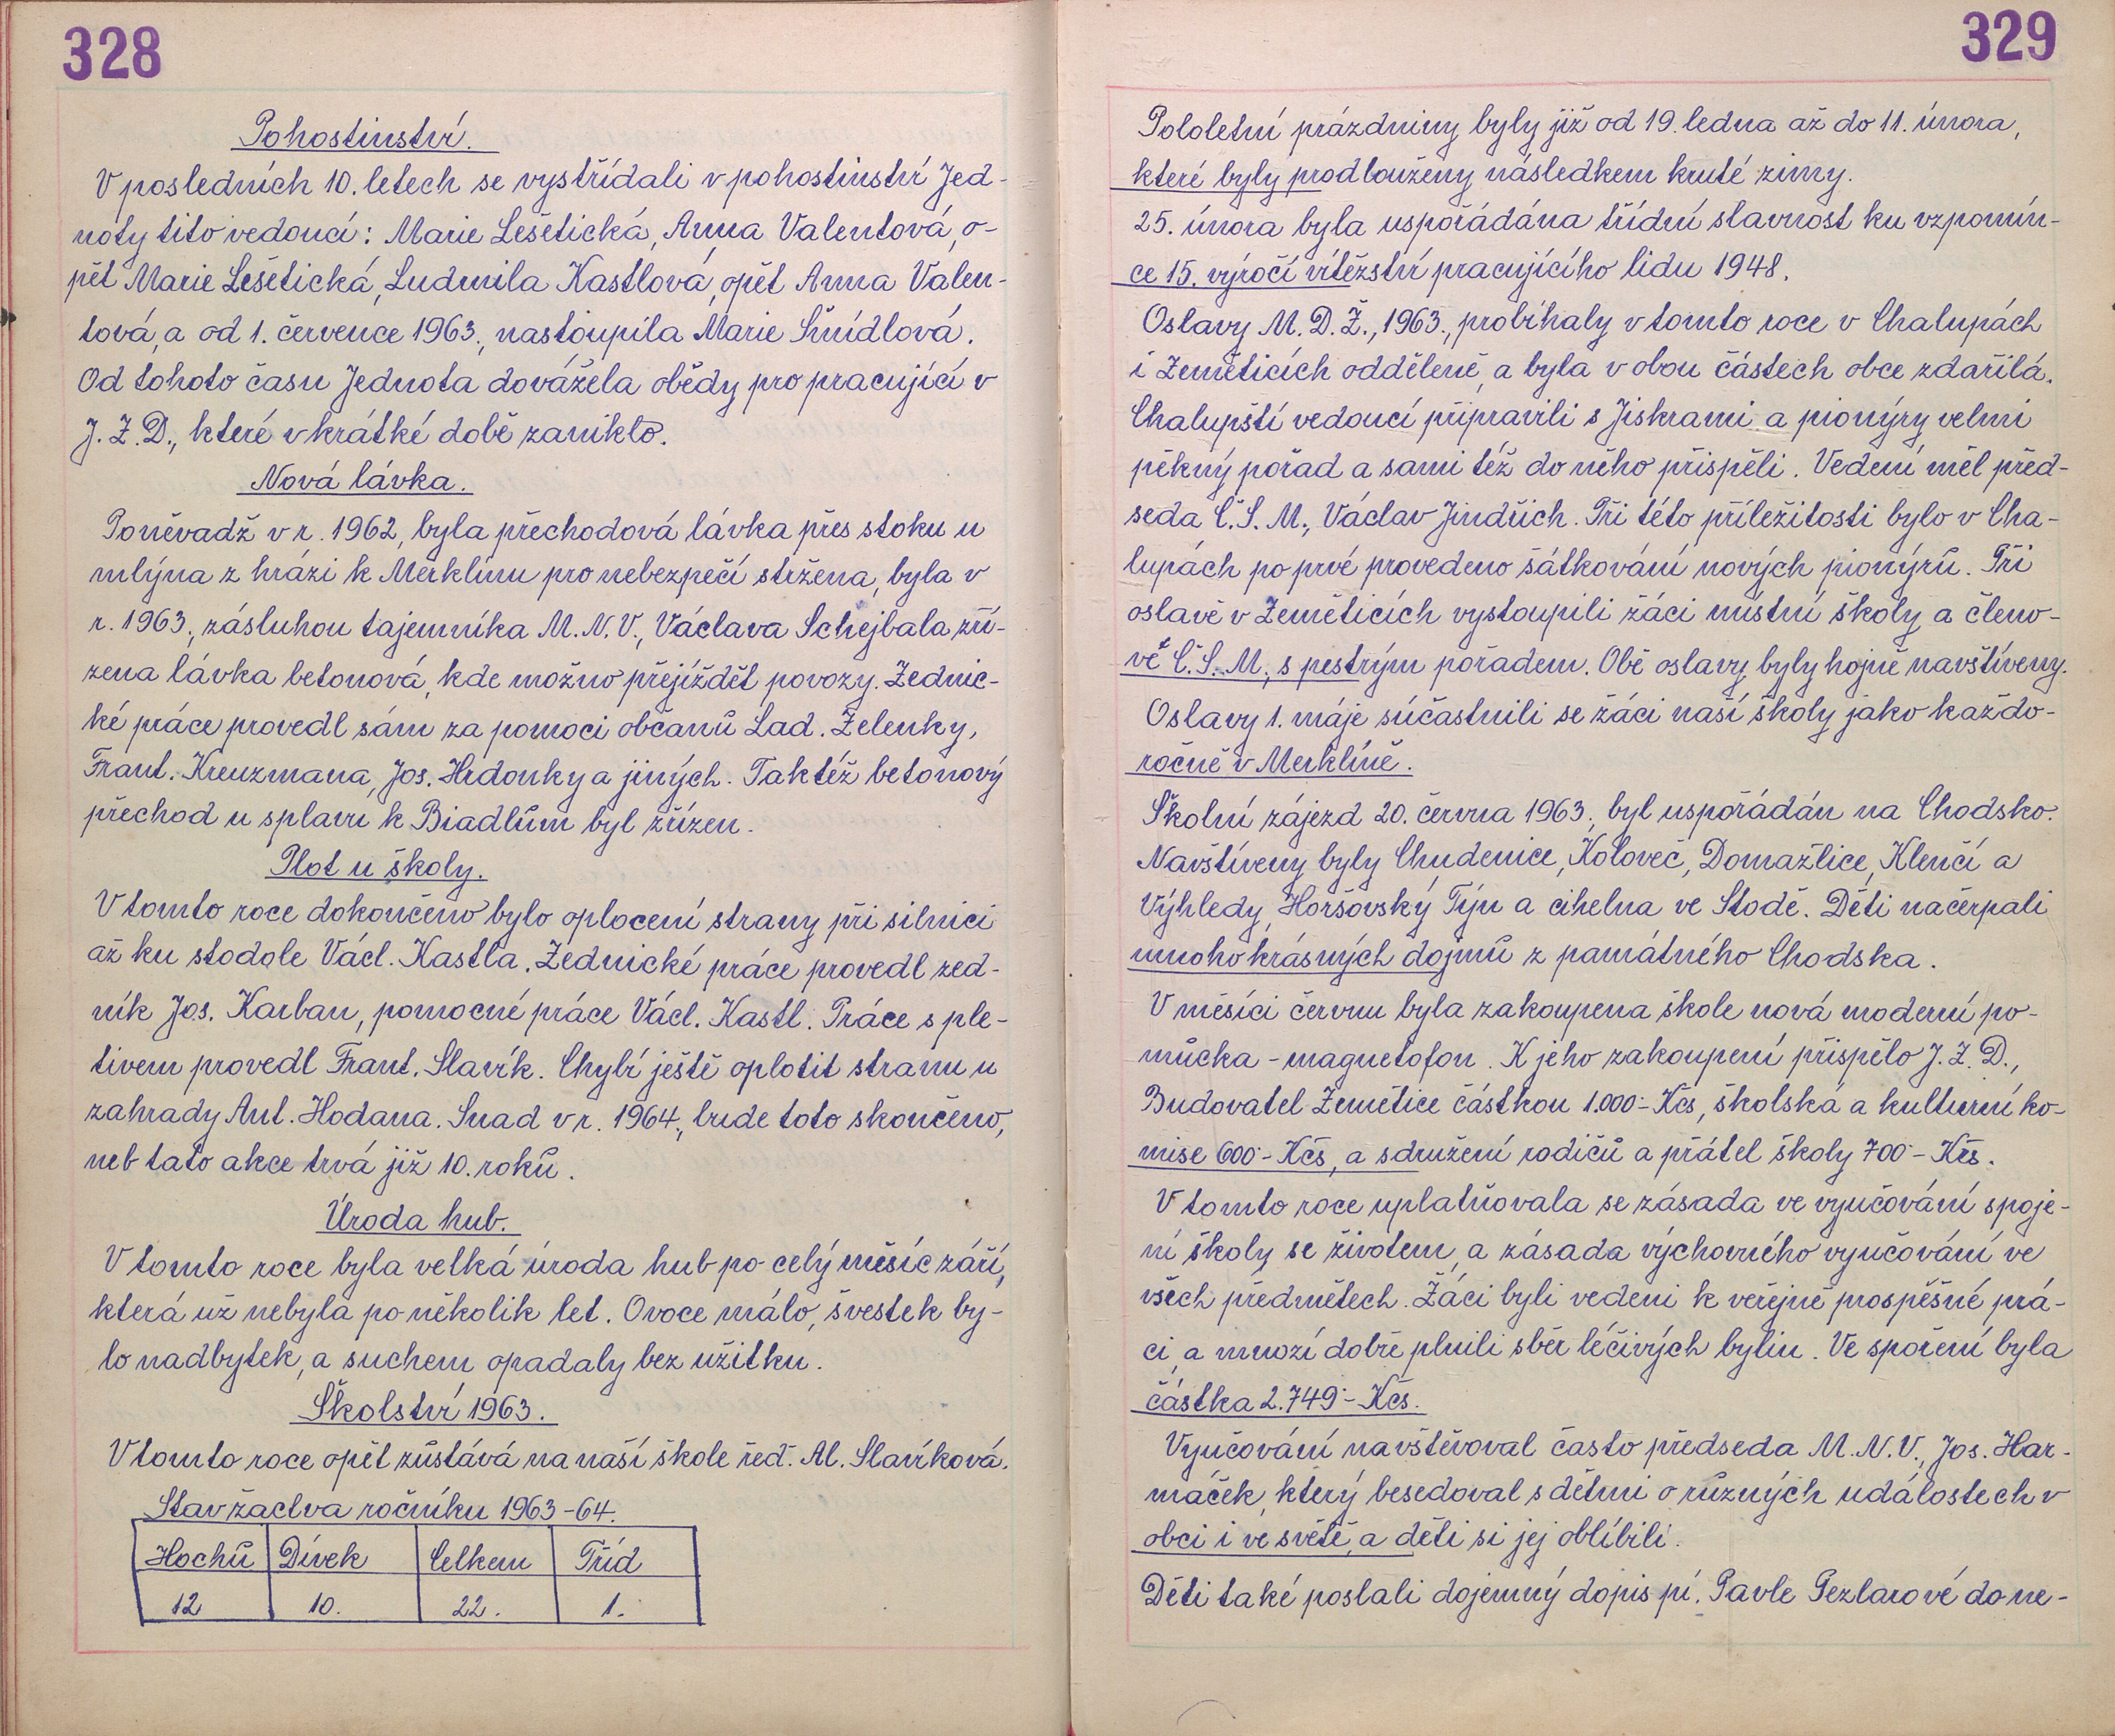 328
Pohostinství.
V posledních 10. letech se vystřídali v pohostinství Jed-
noty tito vedoucí: Marie Lešetická, Anna Valentová, o-
pět Marie Lešetická, Ludmila Kastlová, opět Anna Valen-
tová, a od 1. července 1963., nastoupila Marie Šmídlová.
Od tohoto času Jednota dovážela obědy pro pracující v
J. Z. D., které v krátké době zaniklo.
Nová lávka.
Poněvadž v r. 1962, byla přechodová lávka přes stoku u
mlýna z hrázi k Merklínu pro nebezpečí stržena, byla v
r. 1963., zásluhou tajemníka M. N. V., Václava Schejbala zří-
zena lávka betonová, kde možno přejíždět povozy. Zednic-
ké práce provedl sám za pomoci občanů Lad. Zelenky,
Frant. Kreuzmana, Jos. Hrdonky a jiných. Taktéž betonový
přechod u splavu k Biadlům byl zřízen.
Plot u školy.
V tomto roce dokončeno bylo oplocení strany při silnici
až ku stodole Václ. Kastla. Zednické práce provedl zed-
ník Jos. Karban, pomocné práce Václ. Kastl. Práce s ple-
tivem provedl Frant. Slavík. Chybí ještě oplotit stranu u
zahrady Ant. Hodana. Snad v r. 1964., bude toto skončeno,
neb tato akce trvá již 10. roků.
Úroda hub.
V tomto roce byla velká úroda hub po celý měsíc září,
která už nebyla po několik let. Ovoce málo, švestek by-
lo nadbytek, a suchem opadaly bez užitku.
Školství 1963.
V tomto roce opět zůstává na naší škole řed. Al. Slavíková.
Stav žactva ročníku 1963-64.
Hochů Dívek Celkem Tříd
12 10. 22. 1.
329
Pololetní prázdniny byly již od 19. ledna až do 11. února,
které byly prodlouženy následkem kruté zimy.
25. února byla uspořádána třídní slavnost ku vzpomín-
ce 15. výročí vítězství pracujícího lidu 1948.
Oslavy M. D. Ž., 1963., probíhaly v tomto roce v Chalupách
i Zeměticích odděleně, a byla v obou částech obce zdařilá.
Chalupští vedoucí připravili s Jiskrami a pionýry velmi
pěkný pořad a sami též do něho přispěli. Vedení měl před-
seda Č. S. M., Václav Jindřich. Při této příležitosti bylo v Cha-
lupách po prvé provedeno šátkování nových pionýrů. Při
oslavě v Zeměticích vystoupili žáci místní školy a členo-
vé Č. S. M., s pestrým pořadem. Obě oslavy byly hojně navštíveny.
Oslavy 1. máje súčastnili se žáci naší školy jako každo-
ročně v Merklíně.
Školní zájezd 20. června 1963., byl uspořádán na Chodsko.
Navštíveny byly Chudenice, Koloveč, Domažlice, Klenčí a
Výhledy, Horšovský Týn a cihelna ve Stodě. Děti načerpali
mnoho krásných dojmů z památného Chodska.
V měsíci červnu byla zakoupena škole nová moderní po-
můcka - magnetofon. K jeho zakoupení přispělo J. Z. D.,
Budovatel Zemětice částkou 1.000·- Kčs, školská a kulturní ko-
mise 600·- Kčs, a sdružení rodičů a přátel školy 700·- Kčs.
V tomto roce uplatňovala se zásada ve vyučování spoje-
ní školy se životem, a zásada výchovného vyučování ve
všech předmětech. Žáci byli vedeni k veřejně prospěšné prá-
ci, a mnozí dobře plnili sběr léčivých bylin. Ve spoření byla
částka 2.749·- Kčs.
Vyučování navštěvoval často předseda M. N. V., Jos. Har-
máček, který besedoval s dětmi o různých událostech v
obci i ve světě, a děti si jej oblíbili.
Děti také poslali dojemný dopis pí. Pavle Pezlarové do ne-